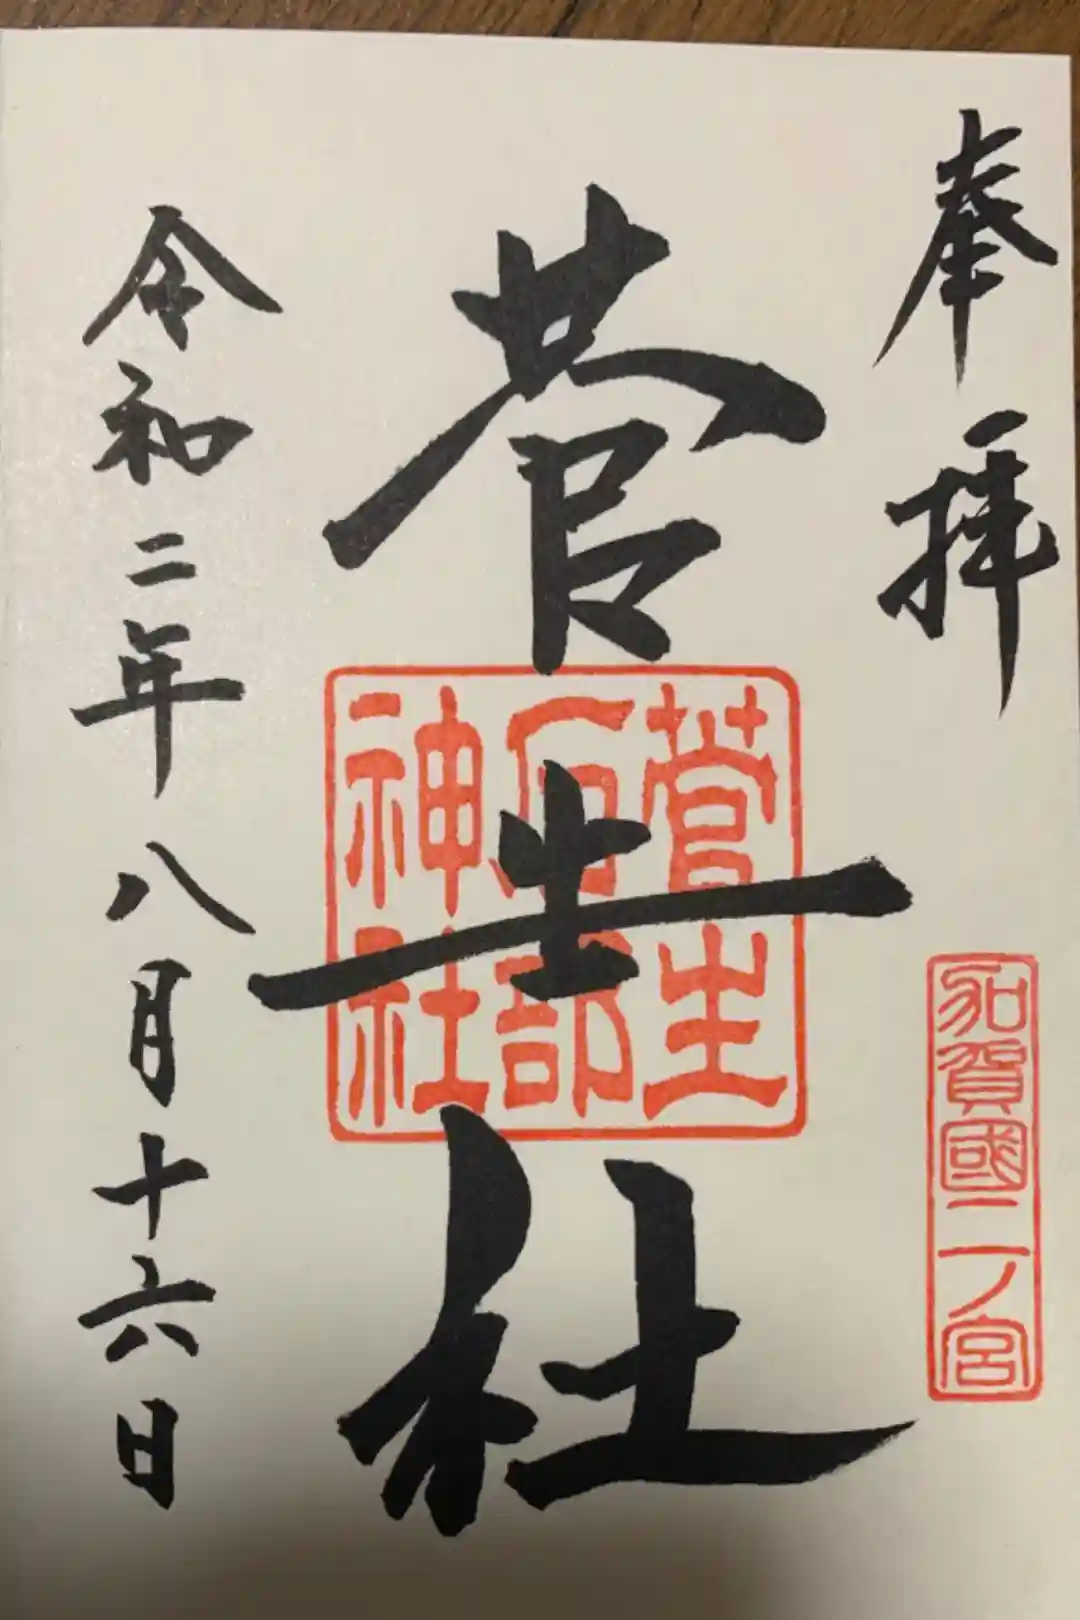 奉拝
加賀國二ノ宮
菅生社
菅生
石部
神社
令和二年八月十六日